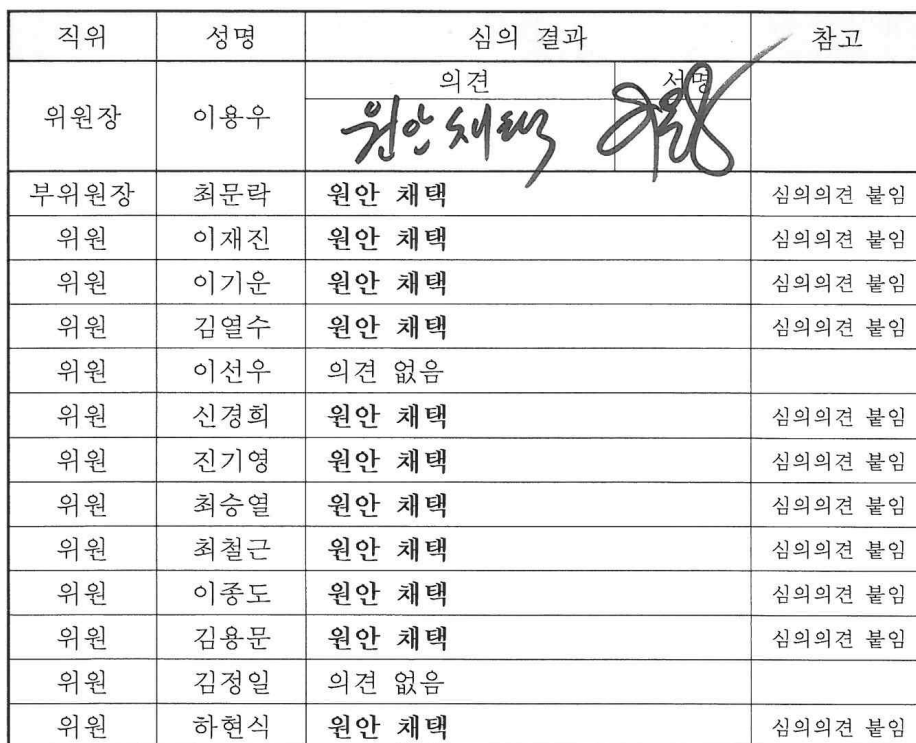 직위 성명 심의 결과 참고
의견 서명
위원장 이용우 원안채택
부위원장 최문락 원안 채택 심의의견 붙임
위원 이재진 원안 채택 심의의견 붙임
위원 이기운 원안 채택 심의의견 붙임
위원 김열수 원안 채택 심의의견 붙임
위원 이선우 의견 없음
위원 신경희 원안 채택 심의의견 붙임
위원 진기영 원안 채택 심의의견 붙임
위원 최승열 원안 채택 심의의견 붙임
위원 최철근 원안 채택 심의의견 붙임
위원 이종도 원안 채택 심의의견 붙임
위원 김용문 원안 채택 심의의견 붙임
위원 김정일 의견 없음
위원 하현식 원안 채택 심의의견 붙임